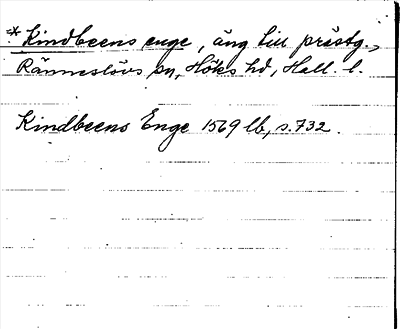 :* Kindbeens enge, äng till prästg.,
Ränneslövs sn, Höks hd, Hall. l.
Kindbeens Enge 1569 lb, s.732.